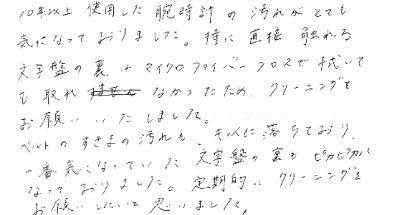 10年以上 使用した腕時計の汚れがとても
気になっておりました。特に直接触れる
文字盤の裏はマイクロファイバークロスで拭いて
も取れ なかったため、クリーニングを
お願いいたしました。
ベルトのすきまの汚れも、キレイに落ちており、
一番気になっていた文字盤の裏もピカピカに
なっておりました。定期的にクリーニングを
お願いしたいと思いました。